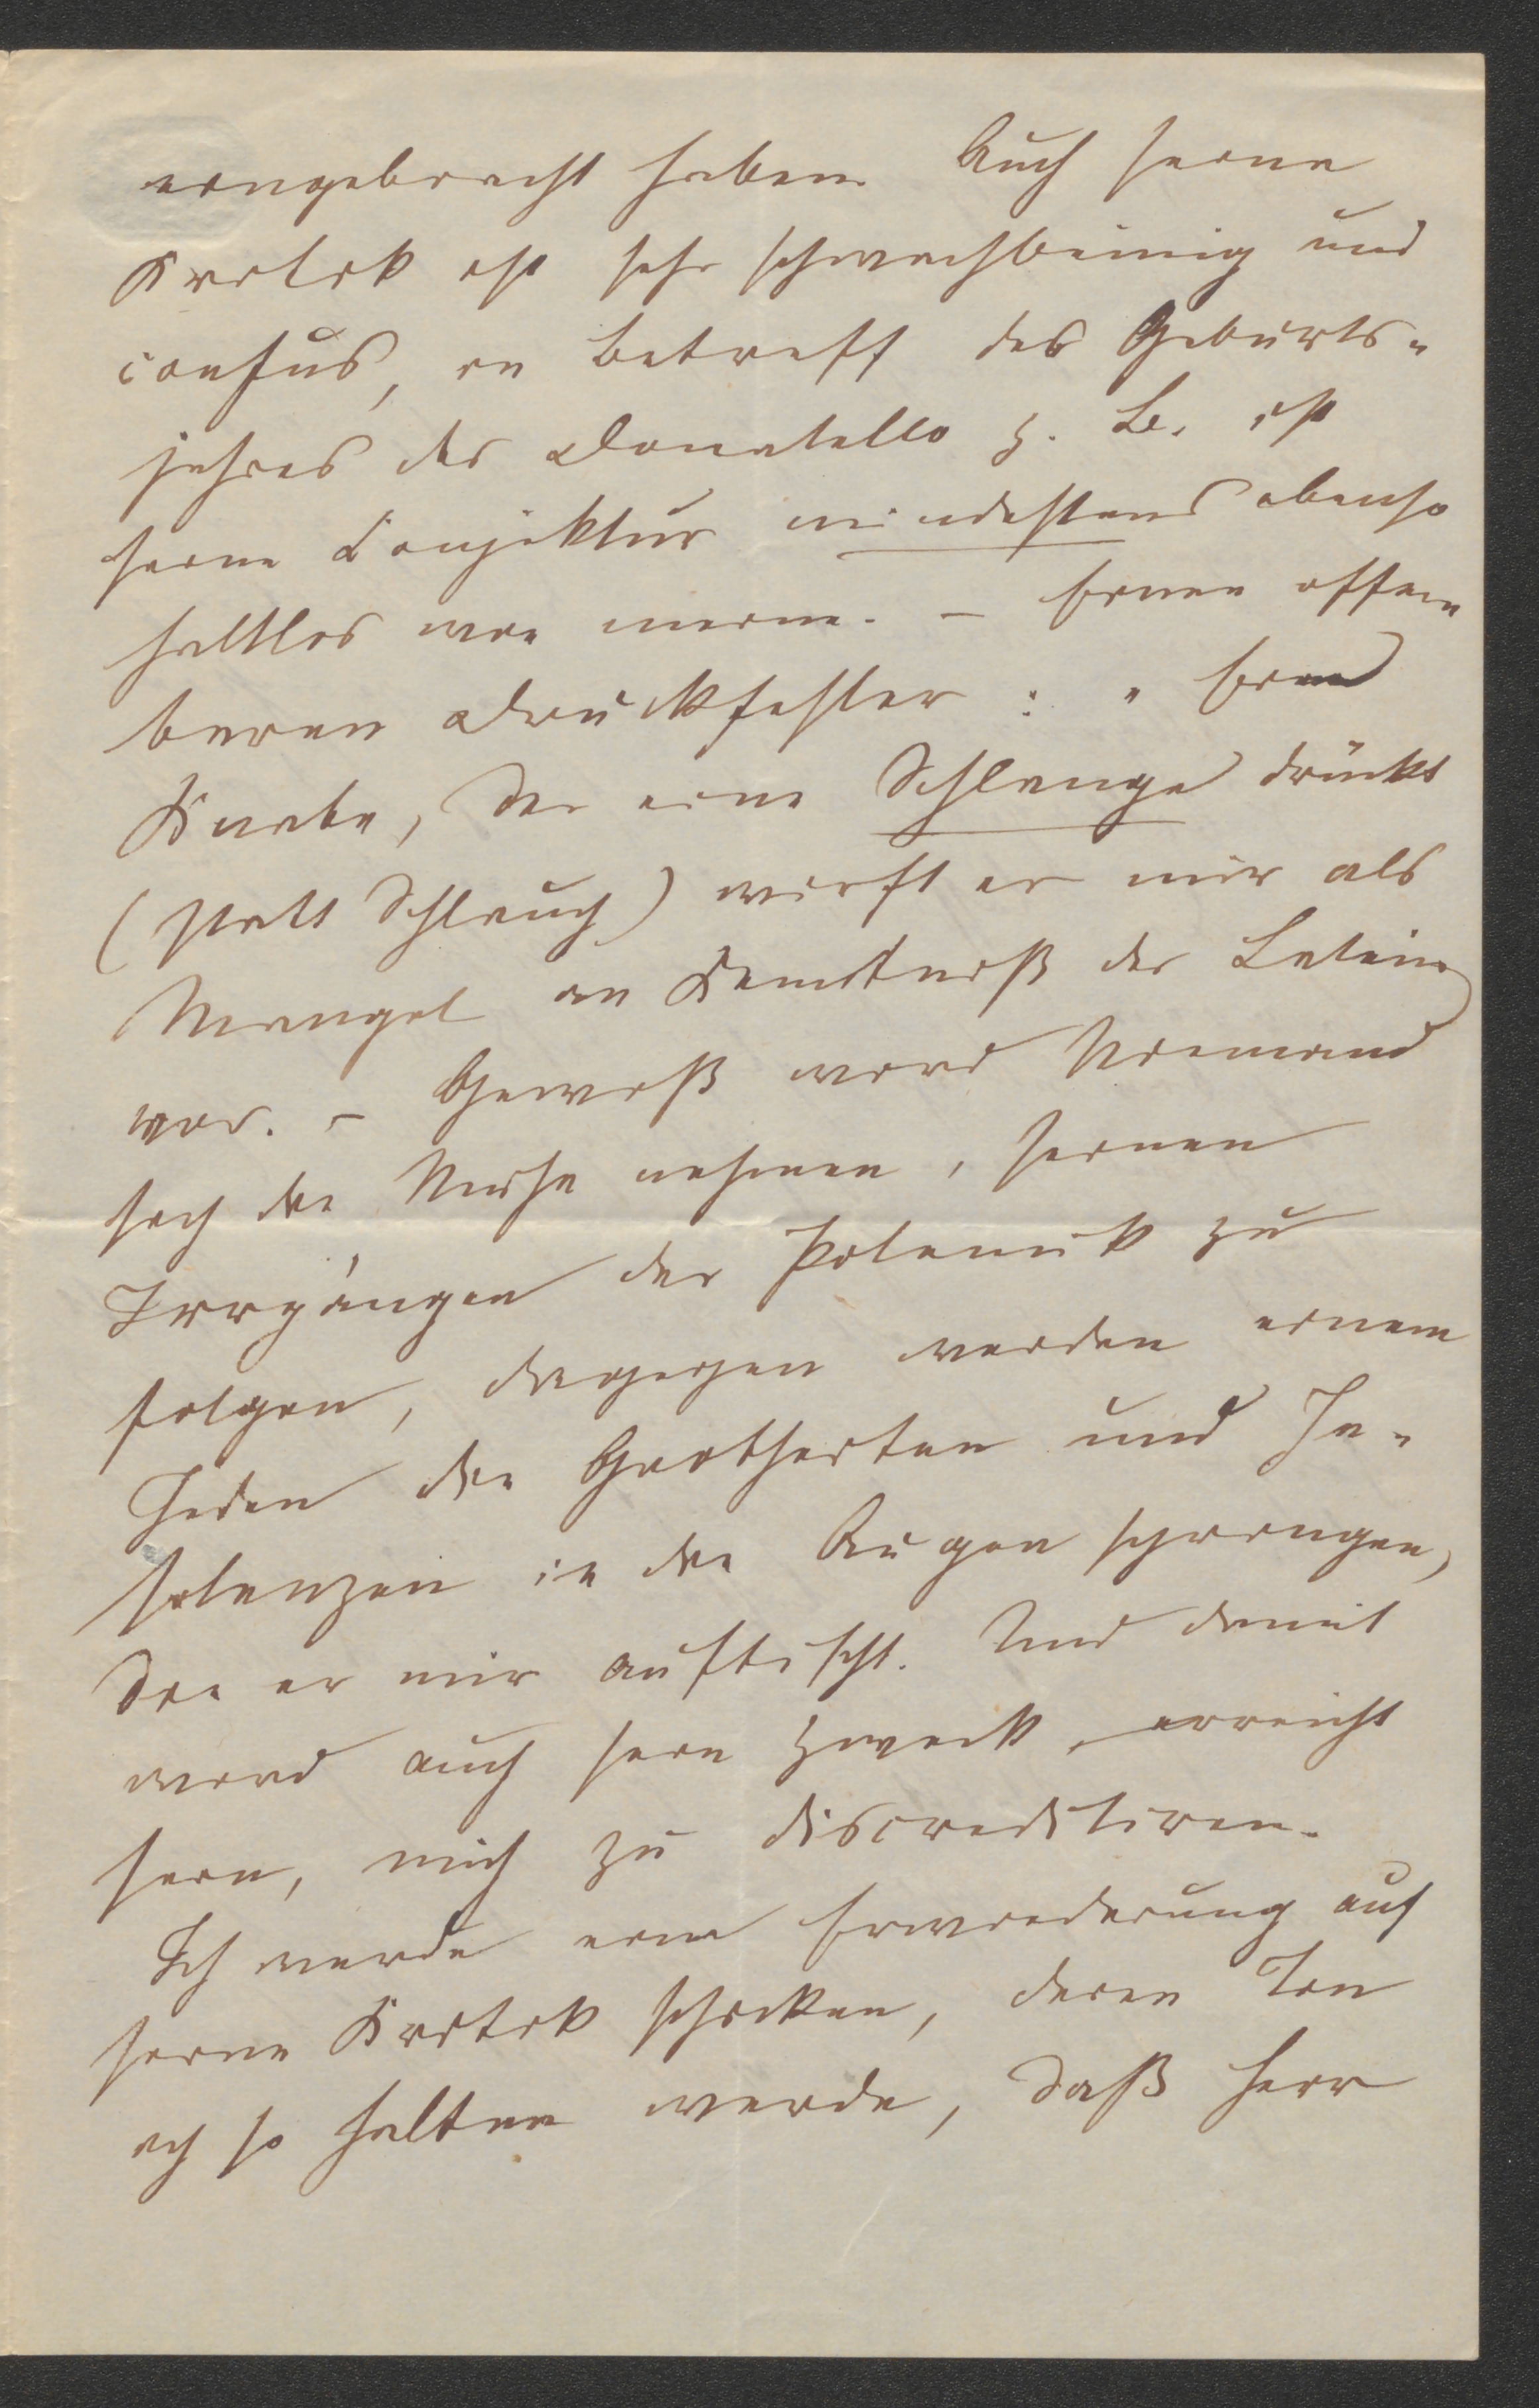 eingebracht haben. Auch seine
Kritik ist sehr schwachbeinig und
confus, in Betreff des Geburts-
jahres des Donatello z. B. ist
seine Conjektur mindestens ebenso
haltlos wie meine. – Einen offen-
baren Druckfehler: „Ein
Knabe, der eine Schlange drückt
(statt Schlauch) wirft er mir als
Mangel an Kenntniß des Latein
vor. – Gewiß wird Niemand
sich die Mühe nehmen, seinen
Irrgängen der Polemik zu
folgen, dagegen werden einem
Jeden die Grobheiten und In-
solenzen in die Augen springen,
die er mir auftischt. Und damit
wird auch sein Zweck erreicht
sein, mich zu discreditiren.
Ich werde eine Erwiederung auf
seine Kritik schicken, deren Ton
ich so halten werde, daß Herr